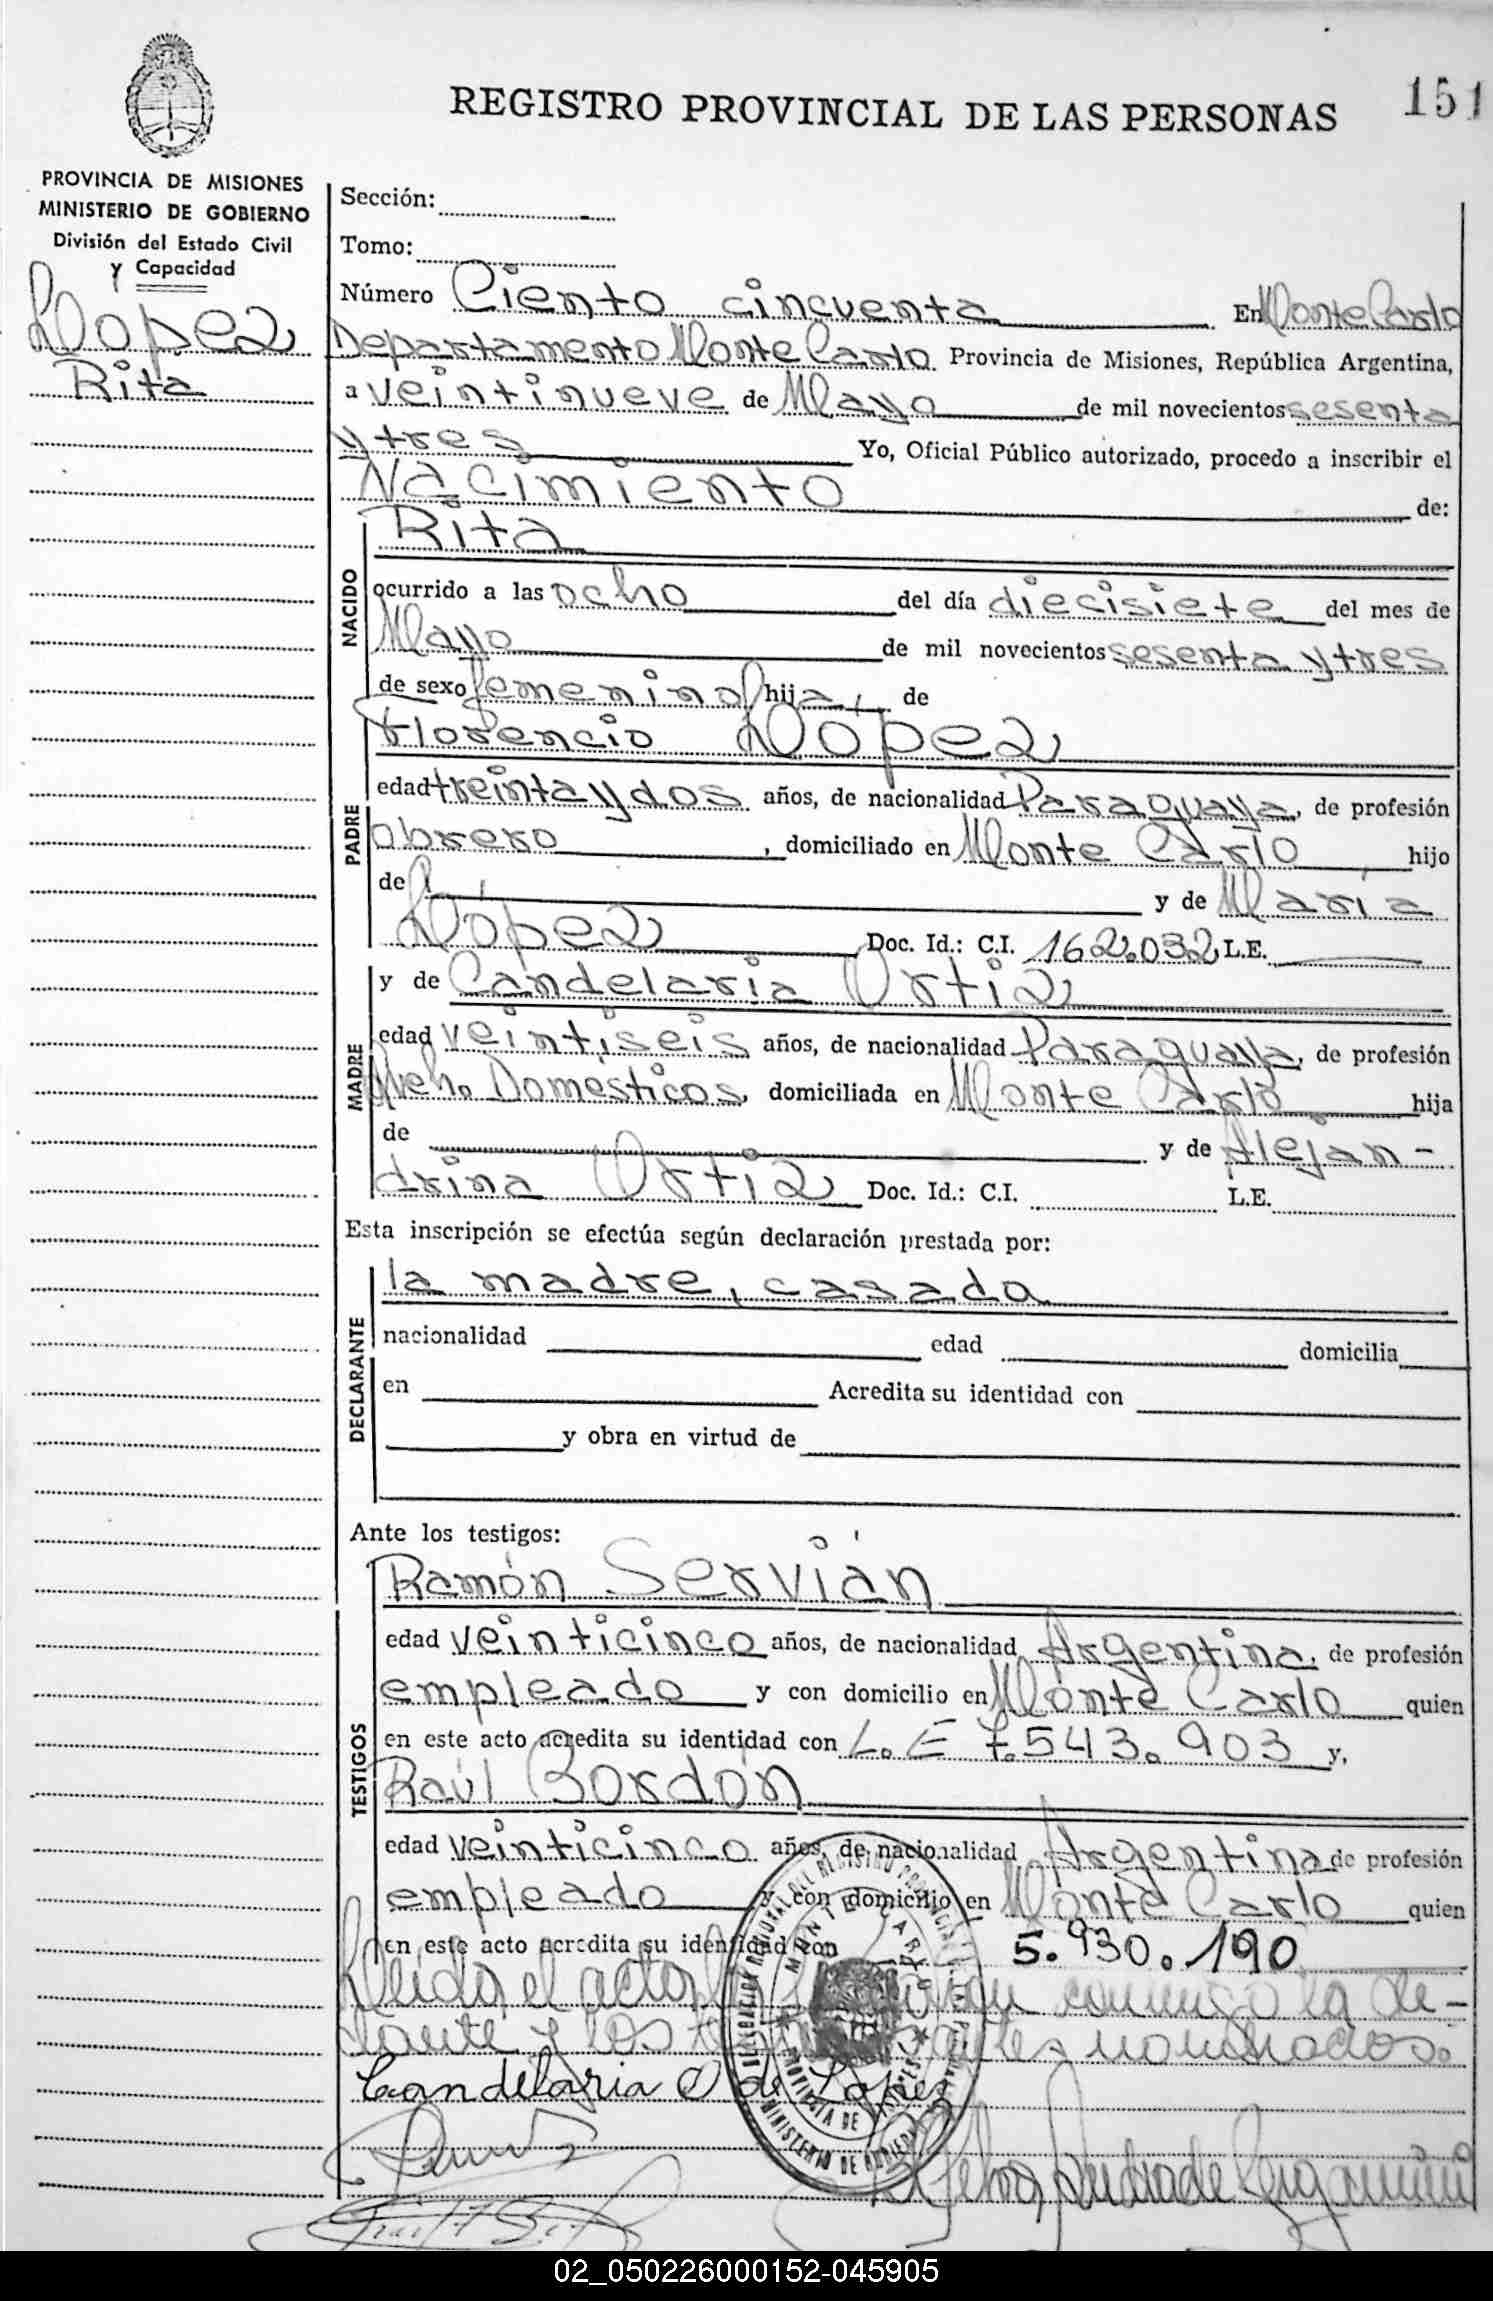 REGISTRO PROVINCIAL DE LAS PERSONAS
151
PROVINCIA DE MISIONES
MINISTERIO DE GOBIERNO
División del Estado Civil
y Capacidad
Lopez
Rita
Sección:
Tomo:
Número Ciento cincuenta En Monte Carlo
Departamento Monte Carlo Provincia de Misiones, República Argentina,
a veintinueve de Mayo de mil novecientos sesenta
y tres Yo, Oficial Público autorizado, procedo a inscribir el
Nacimiento de:
NACIDO
Rita
ocurrido a las ocho del día diecisiete del mes de
Mayo de mil novecientos sesenta y tres
de sexo femenino hija, de
PADRE
Florencio Lopez
edad treinta y dos años, de nacionalidad Paraguaya, de profesión
obrero, domiciliado en Monte Carlo hijo
de y de María
López Doc. Id.: C.I. 162.032 L.E.
MADRE
y de Candelaria Ortiz
edad veintiseis años, de nacionalidad Paraguaya, de profesión
Queh. Domésticos, domiciliada en Monte Carlo hija
de y de Alejan-
drina Ortiz Doc. Id.: C.I. L.E.
Esta inscripción se efectúa según declaración prestada por:
DECLARANTE
la madre, casada
nacionalidad edad domicilia
en Acredita su identidad con
y obra en virtud de
Ante los testigos:
TESTIGOS
Ramón Servián
edad veinticinco años, de nacionalidad Argentina, de profesión
empleado y con domicilio en Monte Carlo quien
en este acto acredita su identidad con L.E 7.543.903 y,
Raúl Bordón
edad veinticinco años, de nacionalidad Argentina de profesión
empleado y con domicilio en Monte Carlo quien
en este acto acredita su identidad con 5.930.190
Leída el acta conmigo la de-
clarante y los nombrados.
Candelaria O de Lopez
DELEGACION REGIONAL DEL REGISTRO PROVINCIAL DE LAS PERSONAS
MONTE CARLO
PROVINCIA DE MISIONES
MINISTERIO DE GOBIERNO
02_050226000152-045905